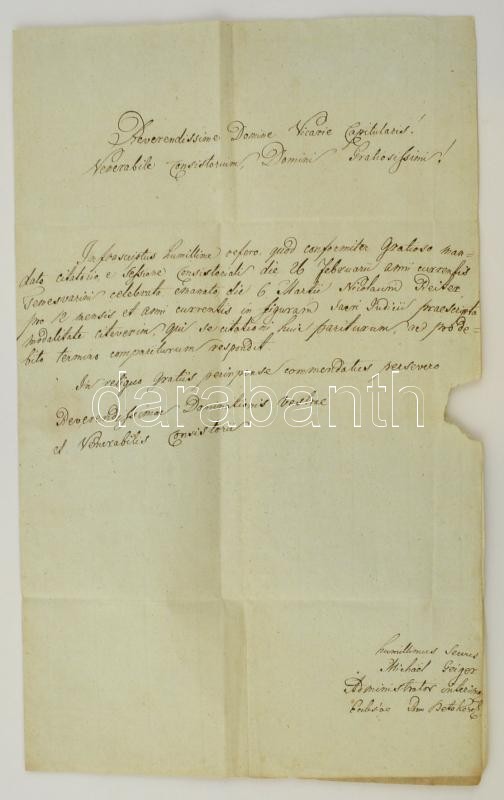 Reverendissime Domine Vicarie Capitularis!
Venerabile Consistorium, Domini Gratiosissimi!
Infrascriptus humillime refero, quod conformiter Gratioso man=
dato citatorio, e Sessione Consistoriali die 26 Februarii anni currentis
Temesvarini celebrata, emanato, die 6 Martii Nicolaum Reiter
pro 12 mensis et anni currentis in figuram Sacri Judicii praescripta
modalitate citaverim, qui se citationi huic pariturum, ac pro de=
bito termino compariturum respondit.
In reliquo Gratiis perinpense commendatus persevero
Reverendissimae Dominationis Vestrae
et Venerabilis Consistorii
darabanth
humillimus servus
Michaël Geiger
Administrator interim.
Ecclesiae